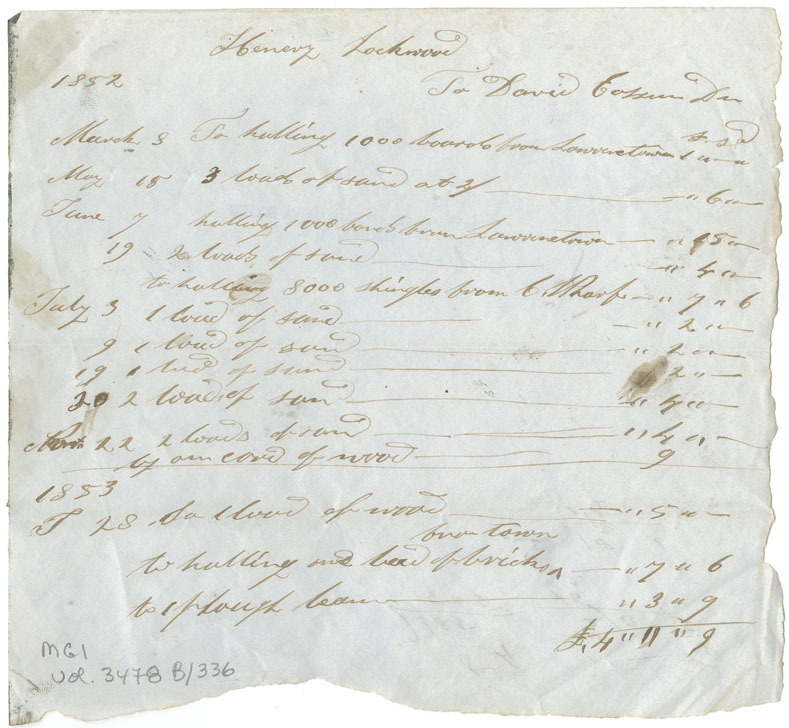 Henery Lockwood
1852 To David Dr
£ s d
March 8 To halling 1000 boards from Lawrencetown 1 " "
May 18 3 loads of sand at 2/ " 6 "
June 7 halling 1000 bords from Lawrencetown " 15 "
19 2 loads of sand " 4 "
to halling 8000 shingles from C. Wharf " 7 " 6
July 3 1 load of sand " 2 "
9 1 load of sand " 2 "
19 1 load of sand " 2 "
20 2 load of sand " 4 "
22 2 loads of sand " 4 "
by one cord of wood 9
1853
28 To 1 load of wood " 5 "
from town
to halling one load of bricks ^ " 7 " 6
to 1 plough beam " 3 " 9
£. 4 " 11 " 9
MG1
Vol. 3478 B/336